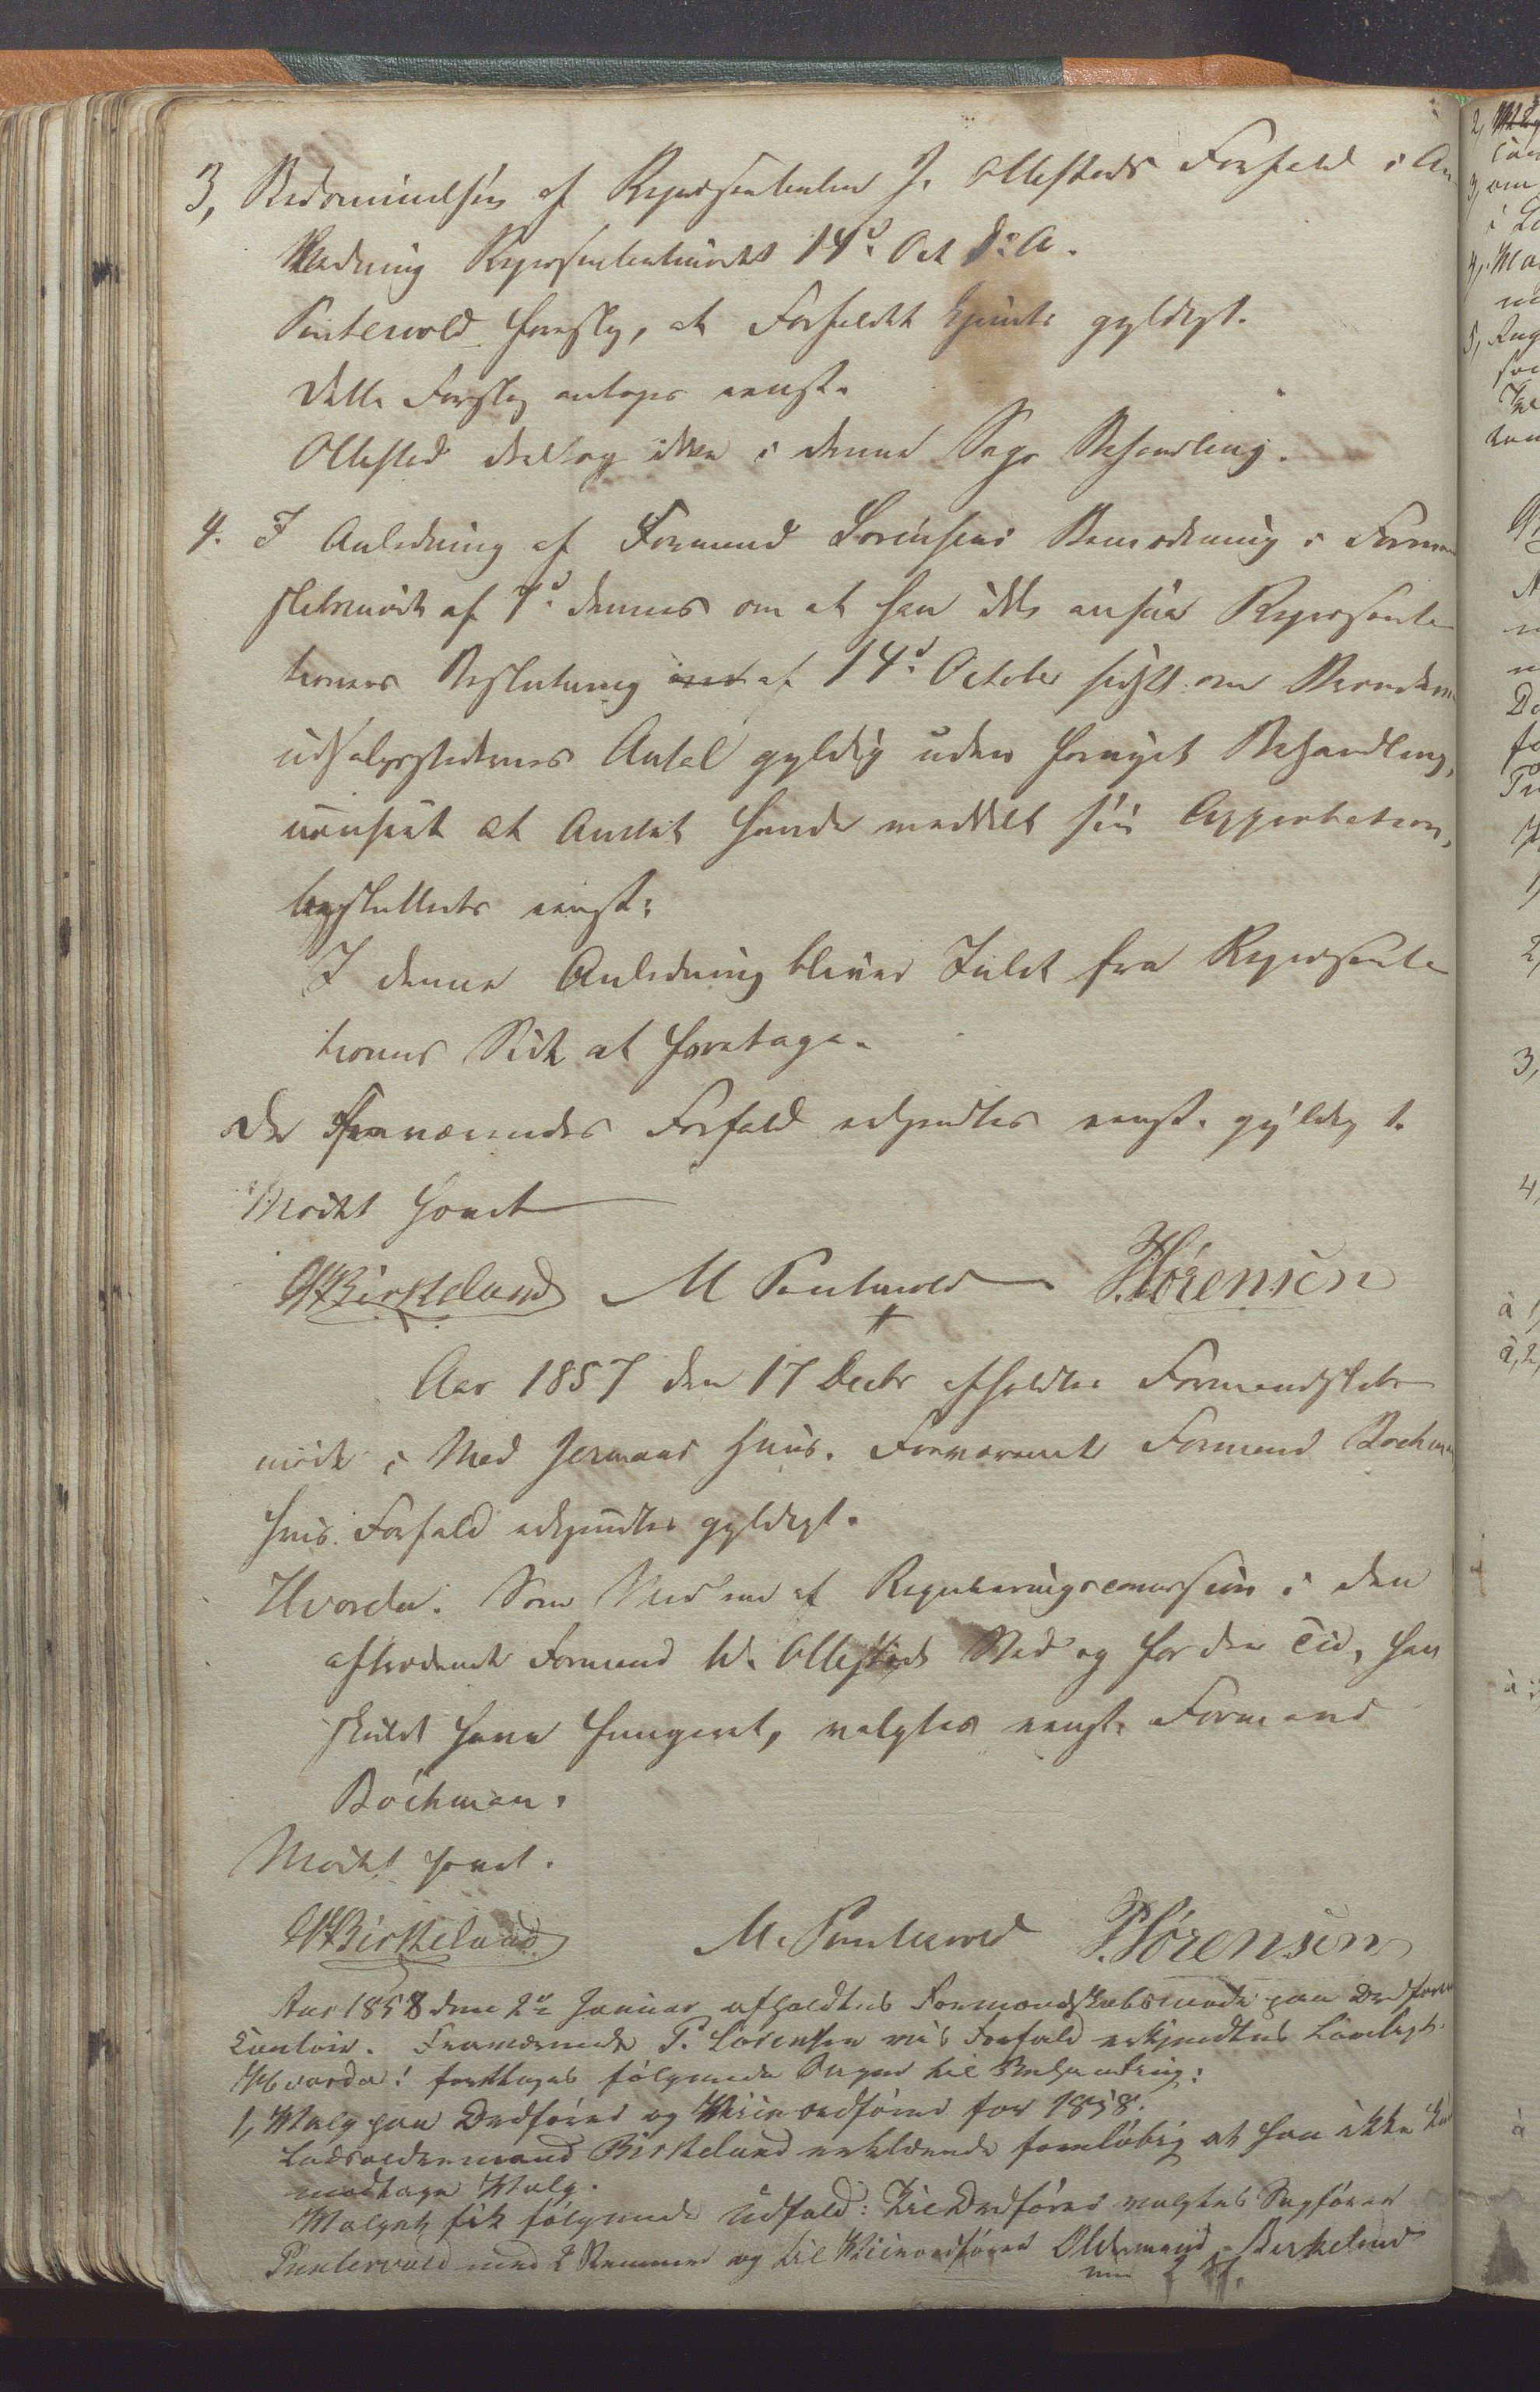 3, Bedømmelsen af Repræsentanten J. Ollestads Forfald i An
ledning Repræsentantmødet 14d Oct d: A.
Puntervold foreslog, at Forfaldet kjendes gyldigt.
Dette Forslag antoges eenst.
Ollestad deeltog ikke i denne Sags Behandling.
4. I Anledning af Formand Sørensens Bemærkning i Formand
skabsmøde af 7d dennes om at han ikke anseer Repræsenta
tionens Beslutning af 14d October sidstl. om Brændeviins
udsalgsstedernes Antal gyldig uden fornyet Behandling,
uanseet at Amtet havde meddelt sin Approbation,
besluttedes eenst:
I denne Anledning bliver Intet fra Repræsenta
tionens Side at foretage.
De fraværendes Forfald erkjendtes eenst. gyldigt.
Mødet hævet
Birkeland M Puntervold P. Sörensen
Aar 1857 den 17 Decbr afholdtes Formandskabs
møde i Mad Jermans Huus. Fraværende Formand Böckman
hvis Forfald erkjendtes gyldigt.
Hvorda: Som Medlem af Reguleringscommission i den
aftrædende Formand W. Ollestads Sted og for den Tid, han
skulde have fungeret, valgtes eenst. Formand
Böckman.
Mødet hævet.
Birkeland M. Puntervold P. Sörensen
Aar 1858 den 2n Januar afholdtes Formandskabsmøde paa Ordførerens
Contoir. Fraværende P. Sörensen vis Forfald erkjendtes Lovligt.
Hvorda: foretages fölgende Sager til Behandling:
1, Valg paa Ordförer og Viceordförer for 1858.
Lodsoldermand Birkeland erklærede foreløbig at han ikke
modtager Valg.
Valget fik fölgende Udfald: Til Ordförer valgtes Sagförer
Puntervold med 2 Stemmer og til Viceordförer Oldermand Birkeland
med 2 St.